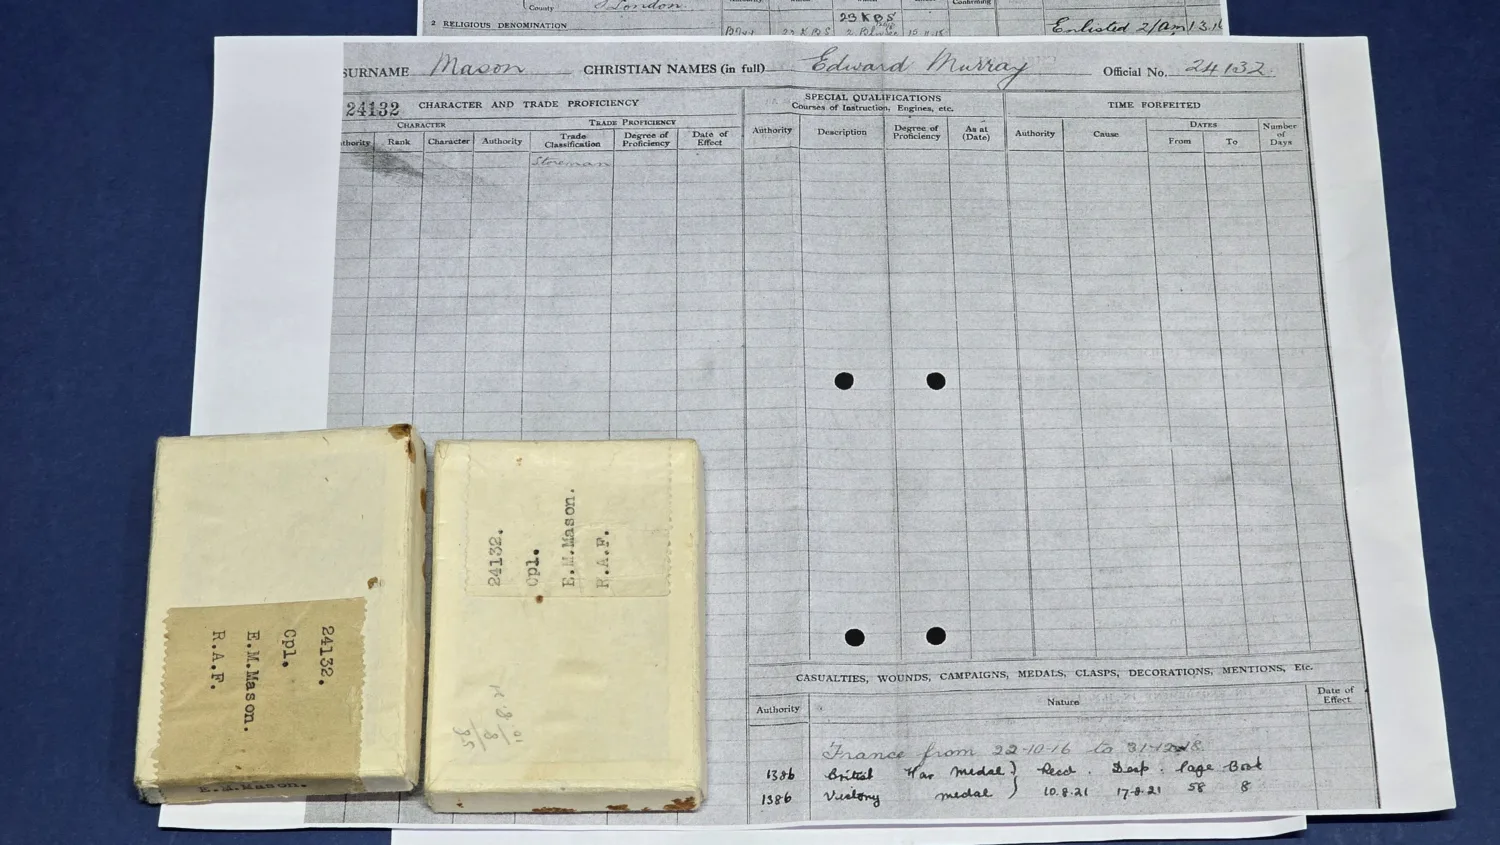 County London.
Confirming
2 RELIGIOUS DENOMINATION
23 KBS
Enlisted 2/am 13.1
SURNAME Mason CHRISTIAN NAMES (in full) Edward Murray Official No. 24132.
24132 CHARACTER AND TRADE PROFICIENCY
SPECIAL QUALIFICATIONS
Courses of Instruction, Engines, etc.
TIME FORFEITED
CHARACTER
TRADE PROFICIENCY
thority Rank Character Authority Trade Classification Degree of Proficiency Date of Effect
Authority Description Degree of Proficiency As at (Date)
Authority Cause DATES From To Number of Days
Storeman
CASUALTIES, WOUNDS, CAMPAIGNS, MEDALS, CLASPS, DECORATIONS, MENTIONS, Etc.
Authority Nature Date of Effect
France from 22-10-16 to
1386 British War Medal } Recd. Desp. Page Book
1386 Victory medal } 10.8.21 17.8.21 58 8
24132.
Cpl.
E.M.Mason.
R.A.F.
E.M.Mason.
24132.
Cpl.
E.M.Mason.
R.A.F.